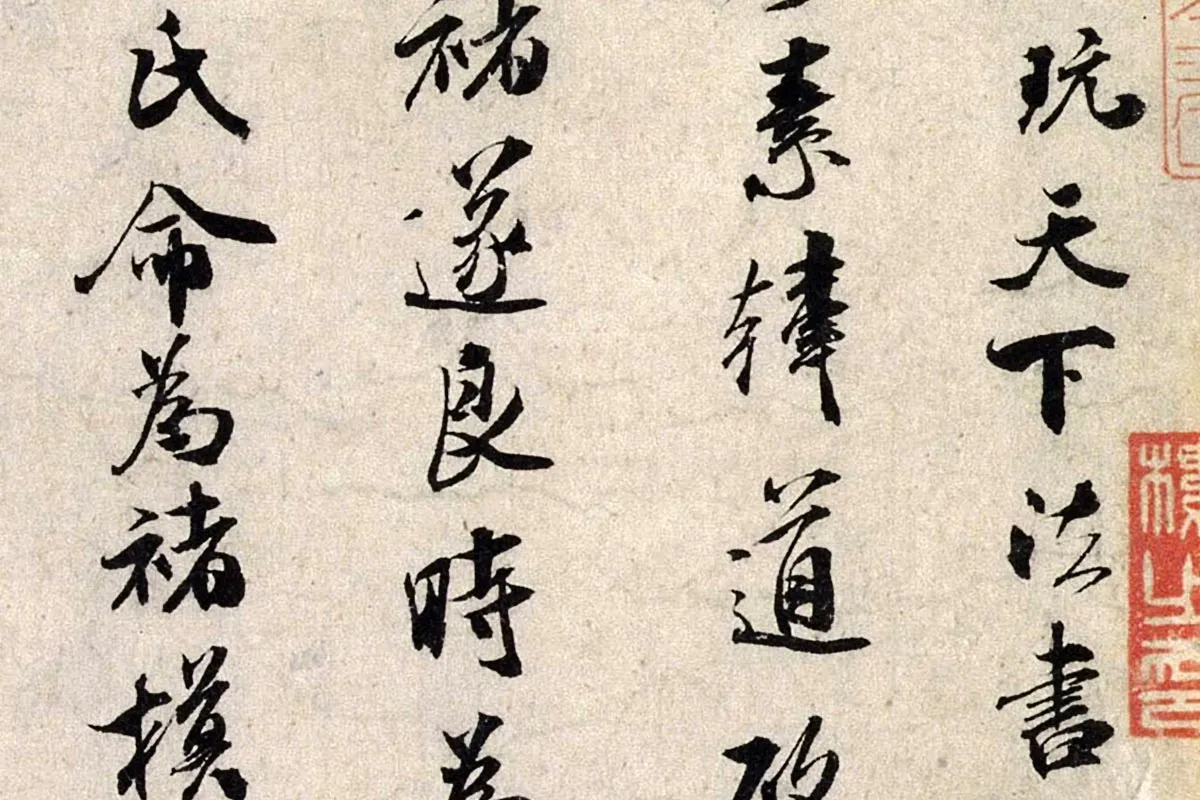 玩天下法書
素韓道
褚遂良時
氏命為褚模